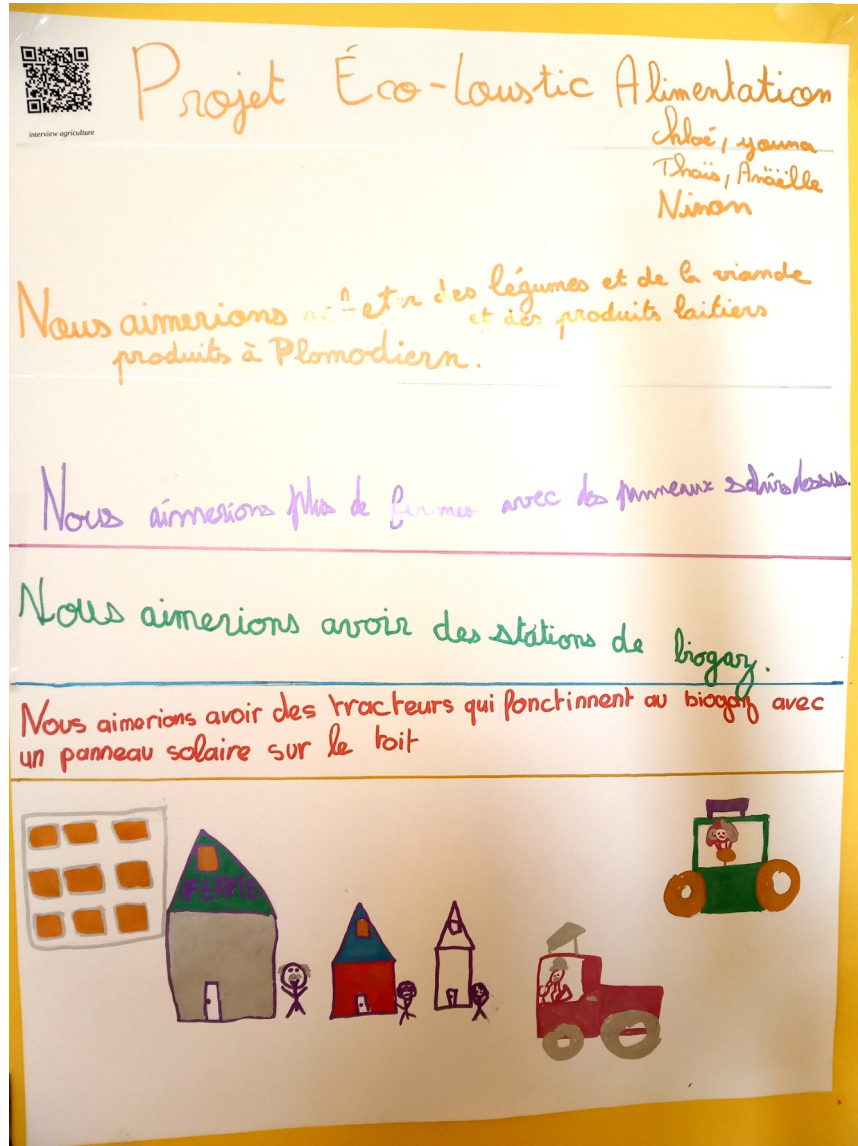 Projet Éco-Loustic Alimentation
interview agriculture
Chloé, youna
Thaïs, Anaëlle
Ninon
Nous aimerions acheter des légumes et de la viande
et des produits laitiers
produits à Plomodiern.
Nous aimerions plus de fermes avec des panneaux dessus.
Nous aimerions avoir des stations de biogaz.
Nous aimerions avoir des tracteurs qui fonctinnent au biogaz avec
un panneau solaire sur le toit
FERME